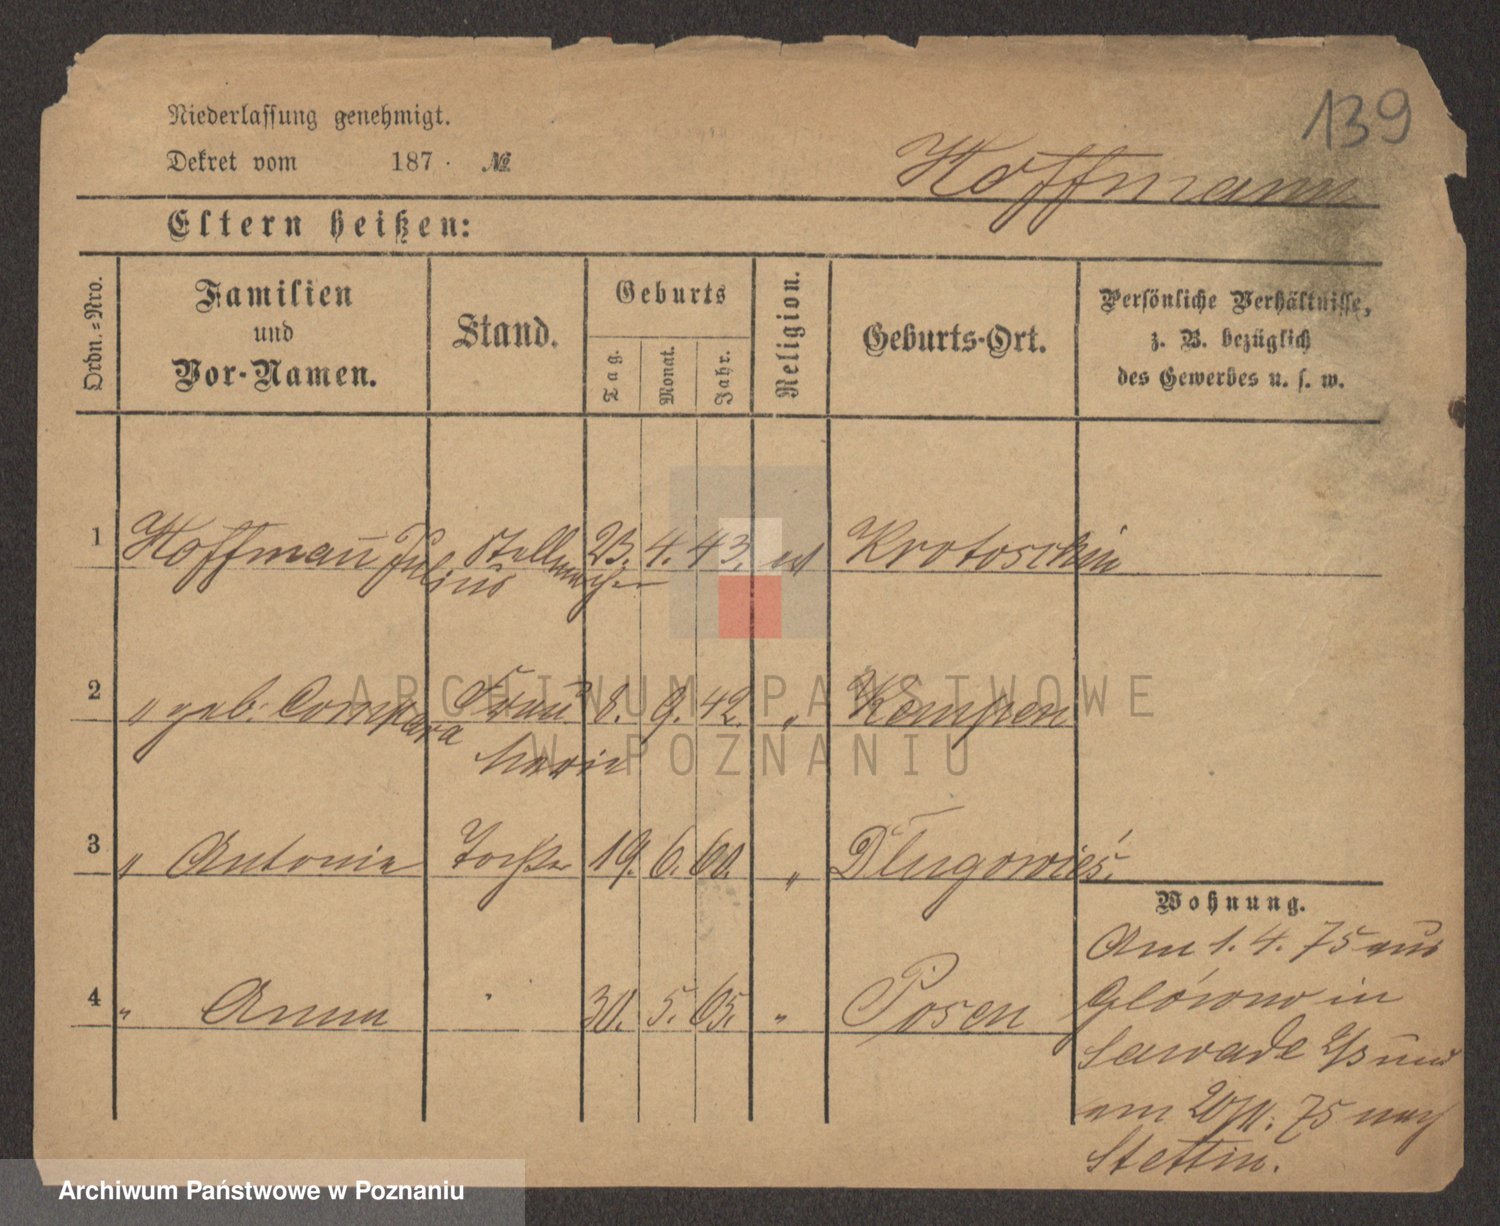 139
Niederlassung genehmigt.
Dekret vom 187 . №
Hoffmann
Eltern heißen:
Ordn.=Nro.
Familien
und
Vor-Namen.
Stand.
Geburts
Tag.
Monat.
Jahr.
Religion.
Geburts-Ort.
Persönliche Verhältnisse,
z. B. bezüglich
des Gewerbes u. s. w.
1 Hoffmann Julius Stellmacher 23. 4. 43. ev Krotoschin
2 " geb. Frau 8. 9. 42. " Kempen
Marie
3 " Antonie Tochter 19. 6. 60. " Długowieś.
4 " Anna " 30. 5. 65. " Posen
Wohnung.
Am 1. 4. 75 aus
Glówno in
Zawade und
am 75 nach
Stettin.
ARCHIWUM PAŃSTWOWE
W POZNANIU
Archiwum Państwowe w Poznaniu